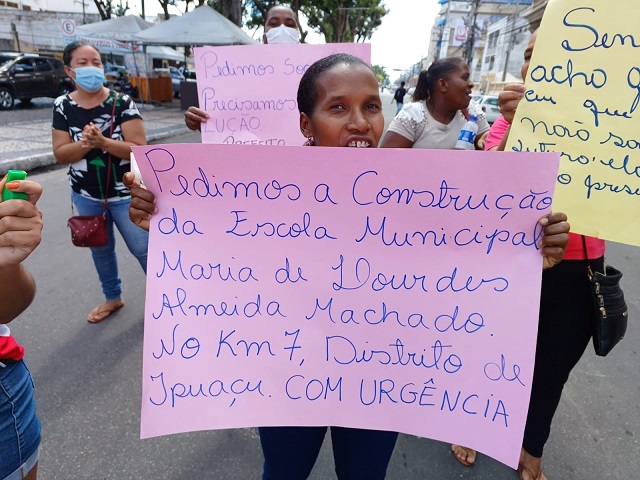 Pedimos a Construção
da Escola Municipal
Maria de Lourdes
Almeida Machado.
No Km 7, Distrito de
Ipuaçu. COM URGÊNCIA
Pedimos Soc
Precisamos
LUÇÃO
PREFEITO
Sen
acho q
em que
não so
futuro, ela
o pres
E